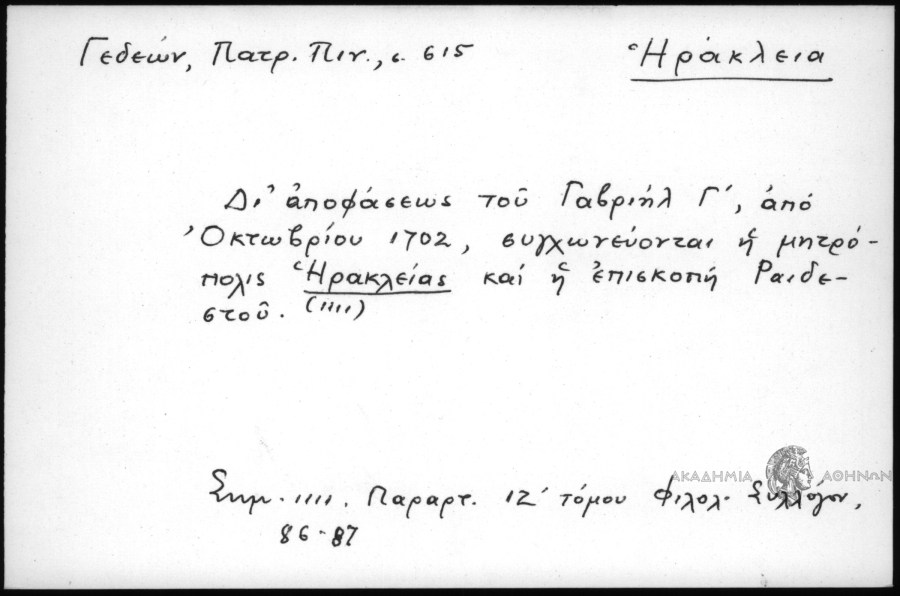 Γεδεών, Πατρ. Πιν., σ. 615
Ἡράκλεια
Δι' ἀποφάσεως τοῦ Γαβριήλ Γ΄, ἀπό
Ὀκτωβρίου 1702, συγχωνεύονται ἡ μητρό-
πολις Ἡρακλείας καί ἡ ἐπισκοπή Ραιδε-
στοῦ. (1111)
ΑΚΑΔΗΜΙΑ ΑΘΗΝΩΝ
Σημ. 1111. Παραρτ. ΙΖ΄ τόμου Φιλολ. Συλλόγου,
86-87